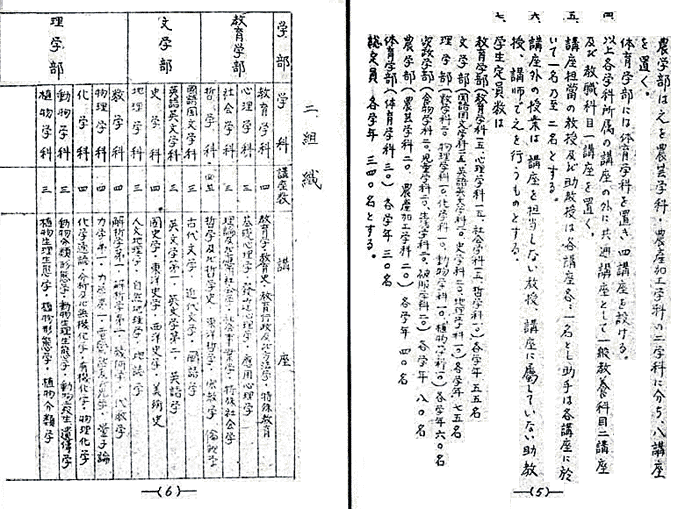 農学部は之を農芸学科、農産加工学科の二学科に分ち、八講座
を置く。
体育学部には体育学科を置き四講座を設ける。
四、以上各学科所属の講座の外に共通講座として一般教養科目二講座
及び教職科目一講座を置く。
五、講座担当の教授及び助教授は各講座各々一名とし助手は各講座に於
いて一名乃至二名とする。
六、講座外の授業は、講座を担当しない教授、講座に属していない助教
授、講師で之を行うものとする。
七、学生定員数は
教育学部(教育学科一五、心理学科一五、社会学科一五、哲学科一〇)各学年五五名
文学部(国語国文学科一五、英語英文学科二〇、史学科二〇、地理学科二〇)各学年七五名
理学部(数学科二〇、物理学科一〇、化学科一〇、動物学科一〇、植物学科一〇)各学年六〇名
家政学部(食物学科二〇、児童学科二〇、生活学科二〇、被服学科二〇)各学年八〇名
農学部(農芸学科二〇、農産加工学科二〇)各学年四〇名
体育学部(体育学科三〇)各学年三〇名
総定員 各学年 三四〇名とする。
(5)
二、組織
学部 学科 講座数 講座
教育学部 教育学科 四 教育学・教育史・教育行政及び方法学・特殊教育
心理学科 三 基礎心理学・発達心理学・應用心理学
社会学科 三 理論及び應用社会学・社会事業学・特殊社会学
哲学科 哲学及び哲学史・東洋哲学・宗教学・倫理学
文学部 国語国文学科 三 古代文学・近代文学・国語学
英語英文学科 三 英文学第一・英文学第二・英語学
史学科 四 国史学・東洋史学・西洋史学・美術史
地理学科 三 人文地理学・自然地理学・地誌学
理学部 数学科 四 解析学第一・解析学第二・幾何学・代数学
物理学科 四 力学第一・力学第二・量子論
化学科 四 化学通論・分析及び無機化学・有機化学・物理化学
動物学科 三 動物分類形態学・動物生理生態学・動物発生遺傳学
植物学科 三 植物生理生態学・植物形態学・植物分類学
(6)